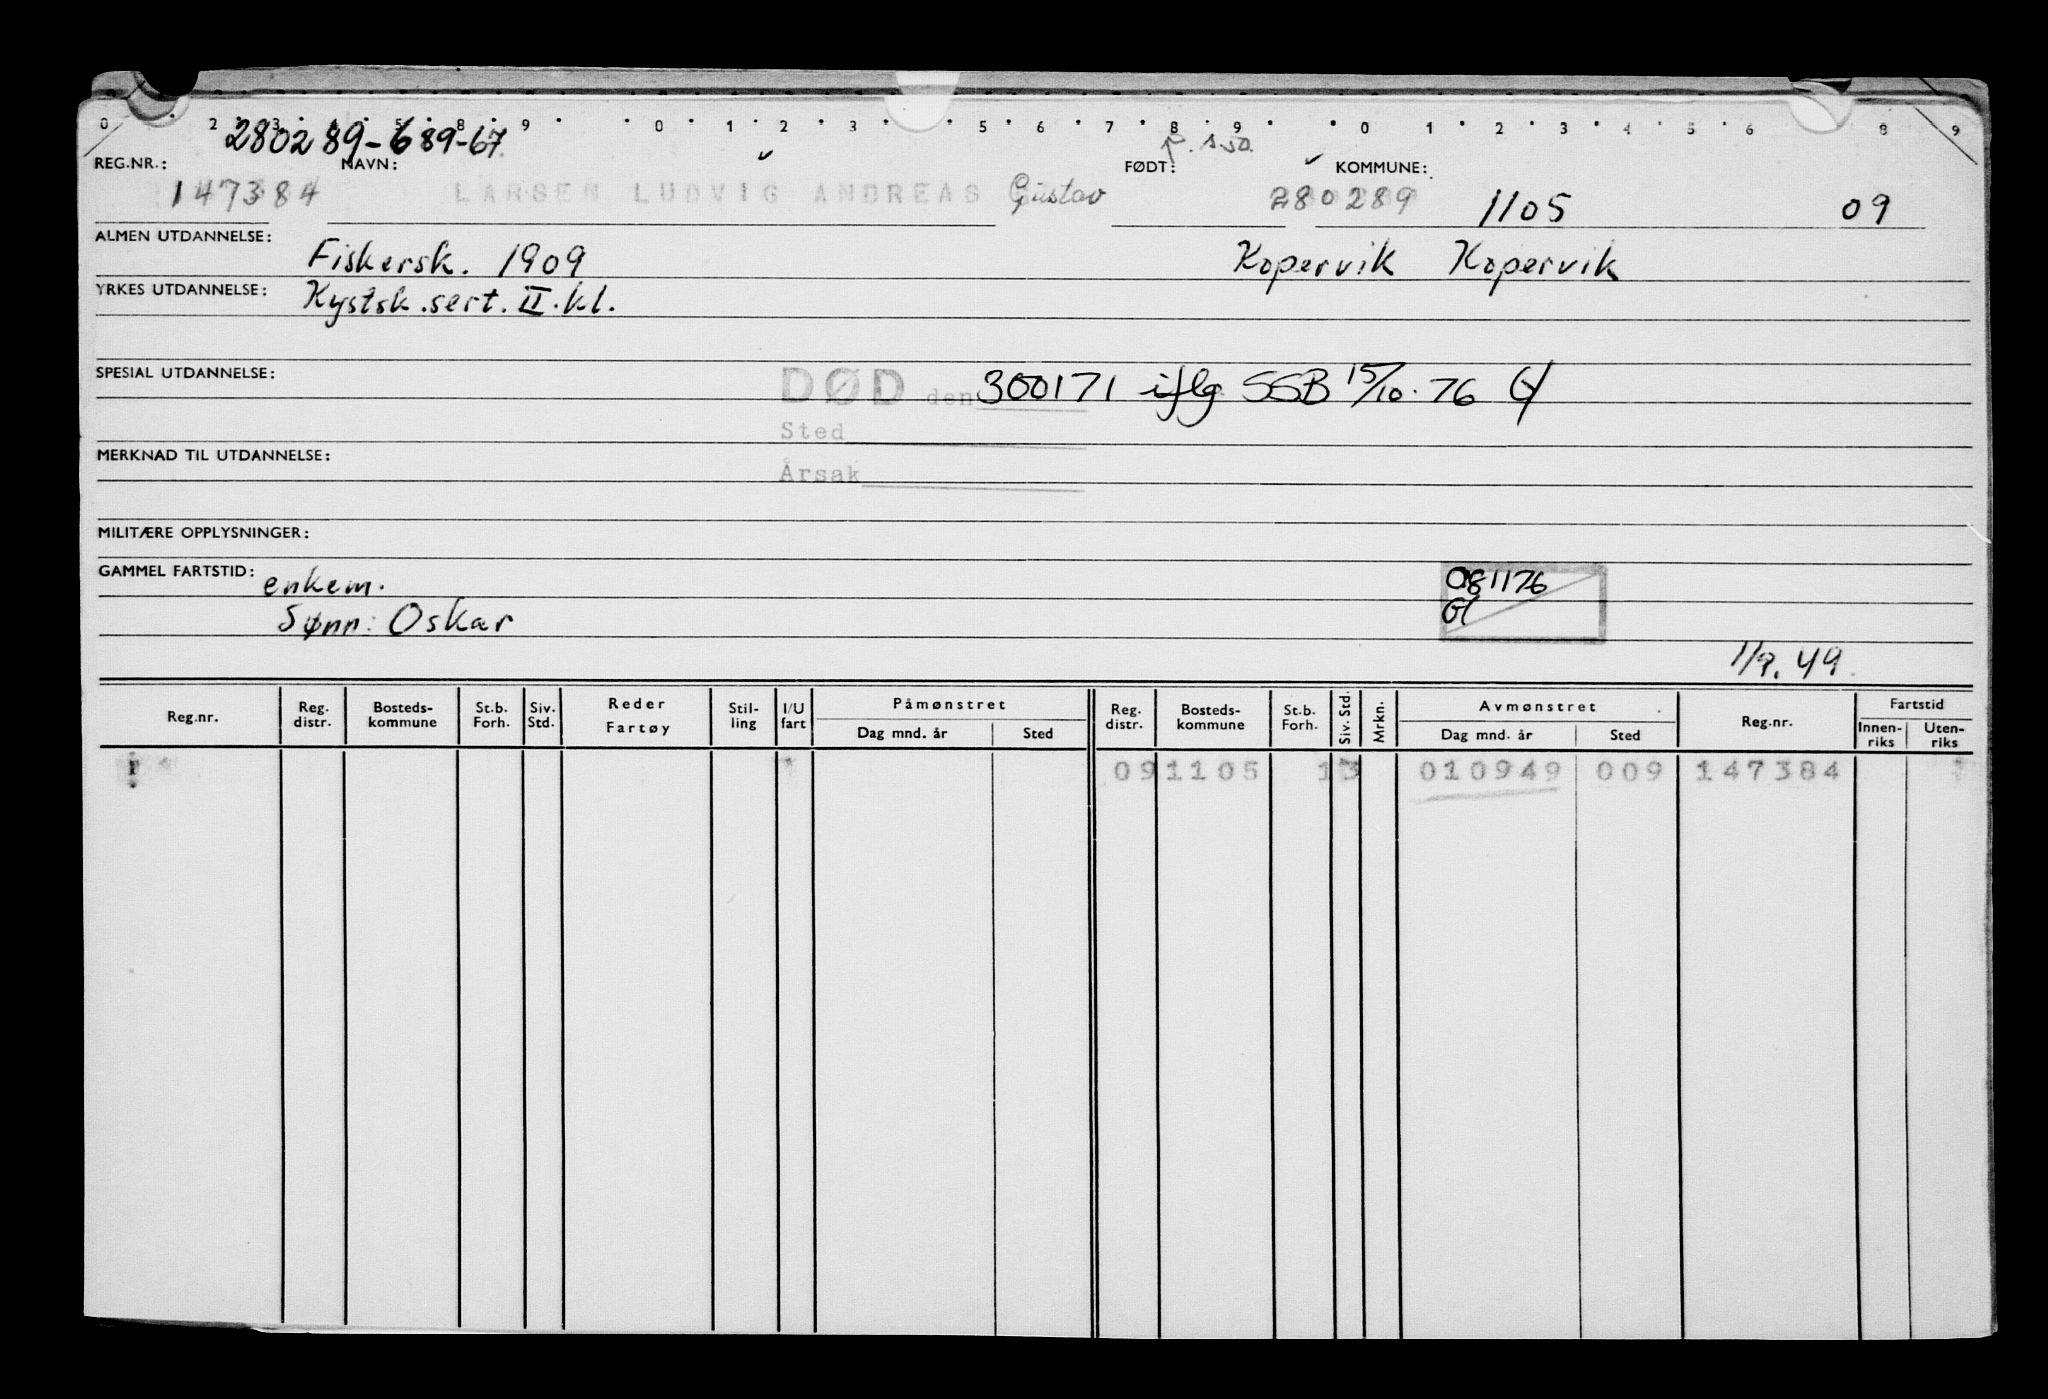 280289-689-67
REG.NR.: NAVN: FØDT: KOMMUNE:
147384 LARSEN LUDVIG ANDREAS Gustav 280289 1105 09
ALMEN UTDANNELSE: Fiskersk. 1909 Kopervik Kopervik
YRKES UTDANNELSE: Kystsk.sert. II.kl.
SPESIAL UTDANNELSE: DØD den 300171 iflg SSB 15/10.76
Sted
MERKNAD TIL UTDANNELSE:
Årsak
MILITÆRE OPPLYSNINGER:
GAMMEL FARTSTID: enkem. 081176
Sønn: Oskar
1/9.49.
Reg.nr. Reg. distr. Bosteds-kommune St.b. Forh. Siv. Std. Reder Fartøy Stil-ling I/U fart Påmønstret Dag mnd. år Sted Reg. distr. Bosteds-kommune St.b. Forh. Siv. Std. Mrkn. Avmønstret Dag mnd. år Sted Reg.nr. Fartstid Innen-riks Uten-riks
09 1105 13 010949 009 147384